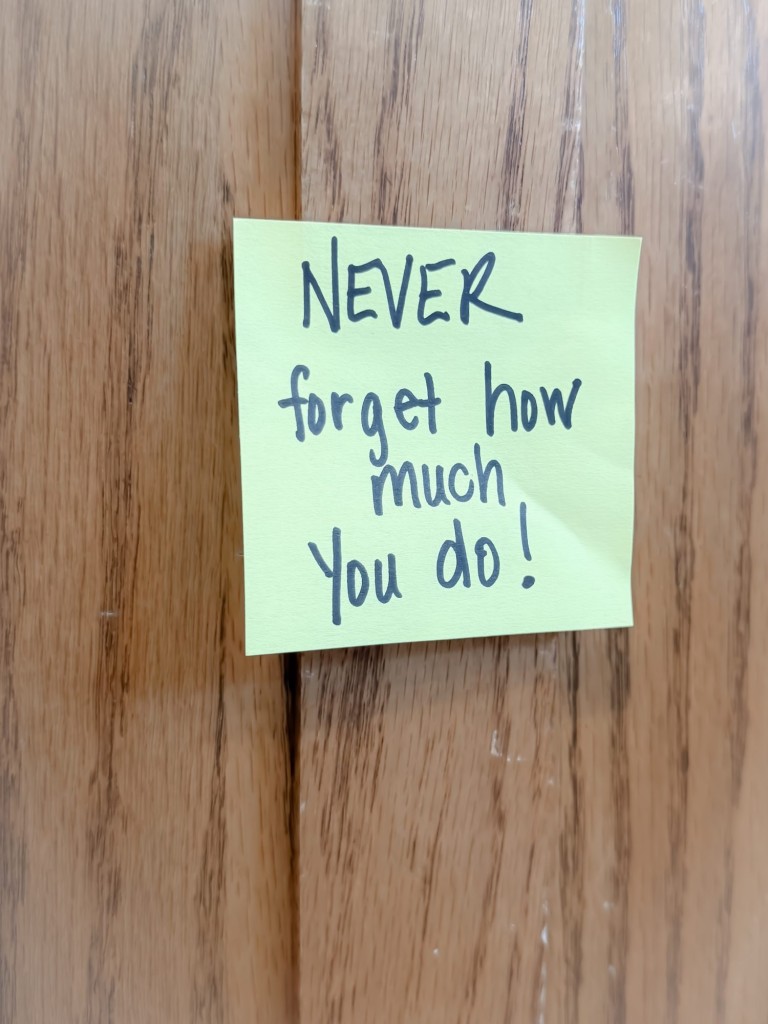 NEVER
forget how
much
You do!